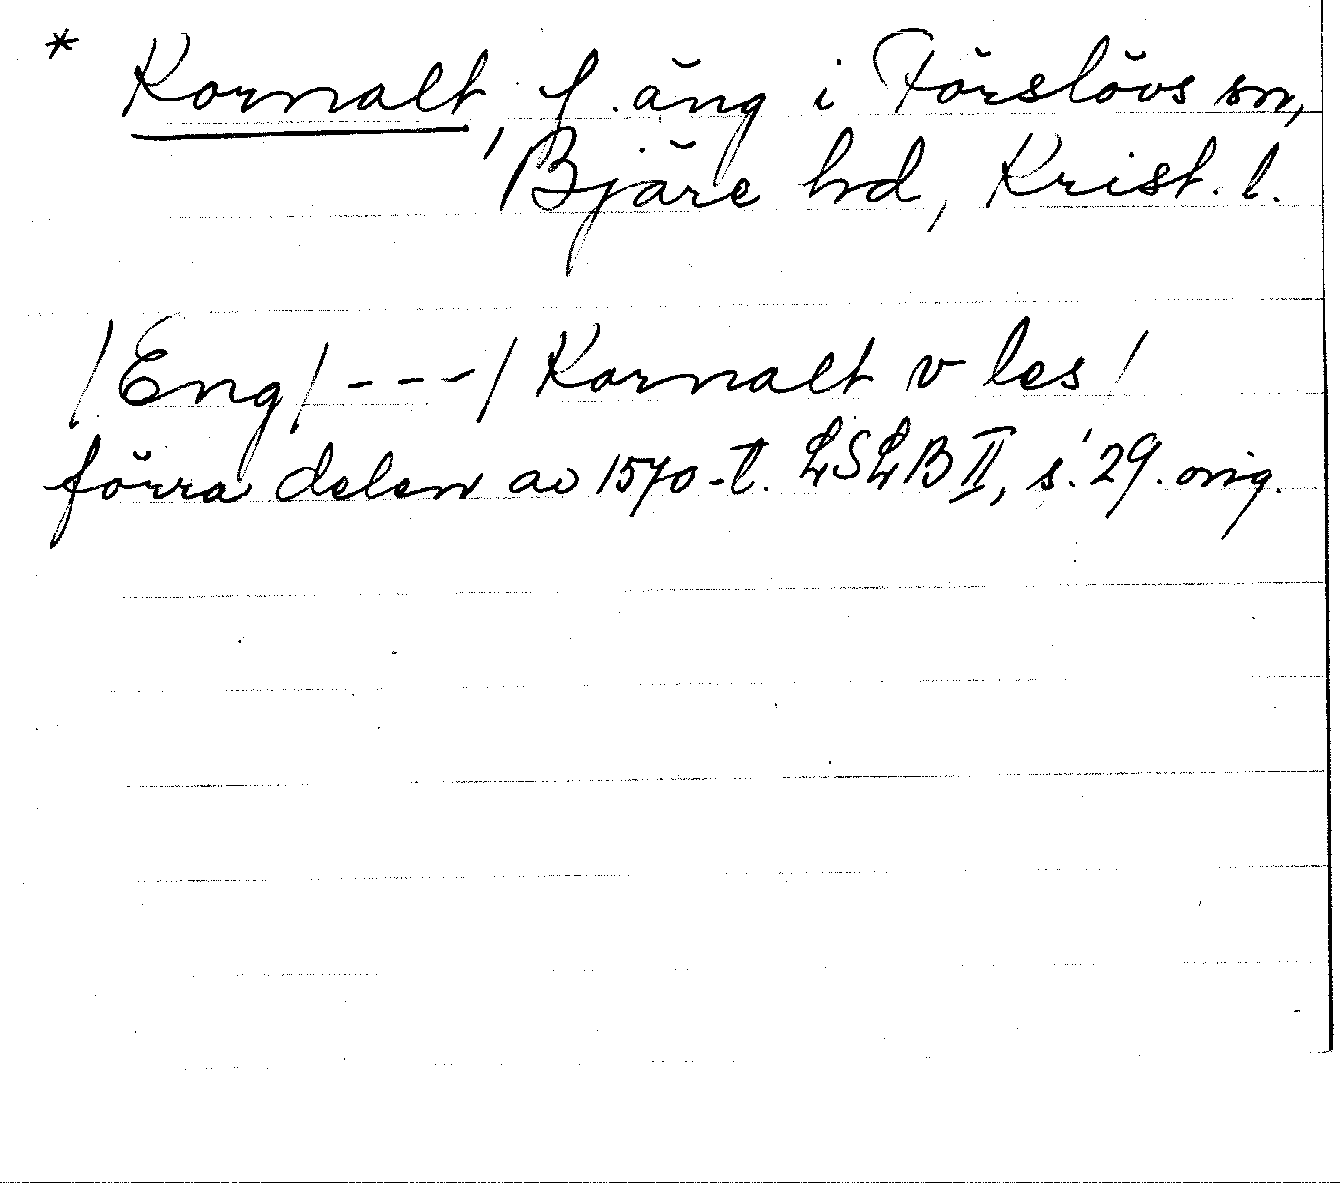 * Kornalt, f. äng i Förslövs sn,
Bjäre hd, Krist. l.
/Eng/---/ Kornalt v les/
förra delen av 1570-t. LSLB II, s. 29. orig.